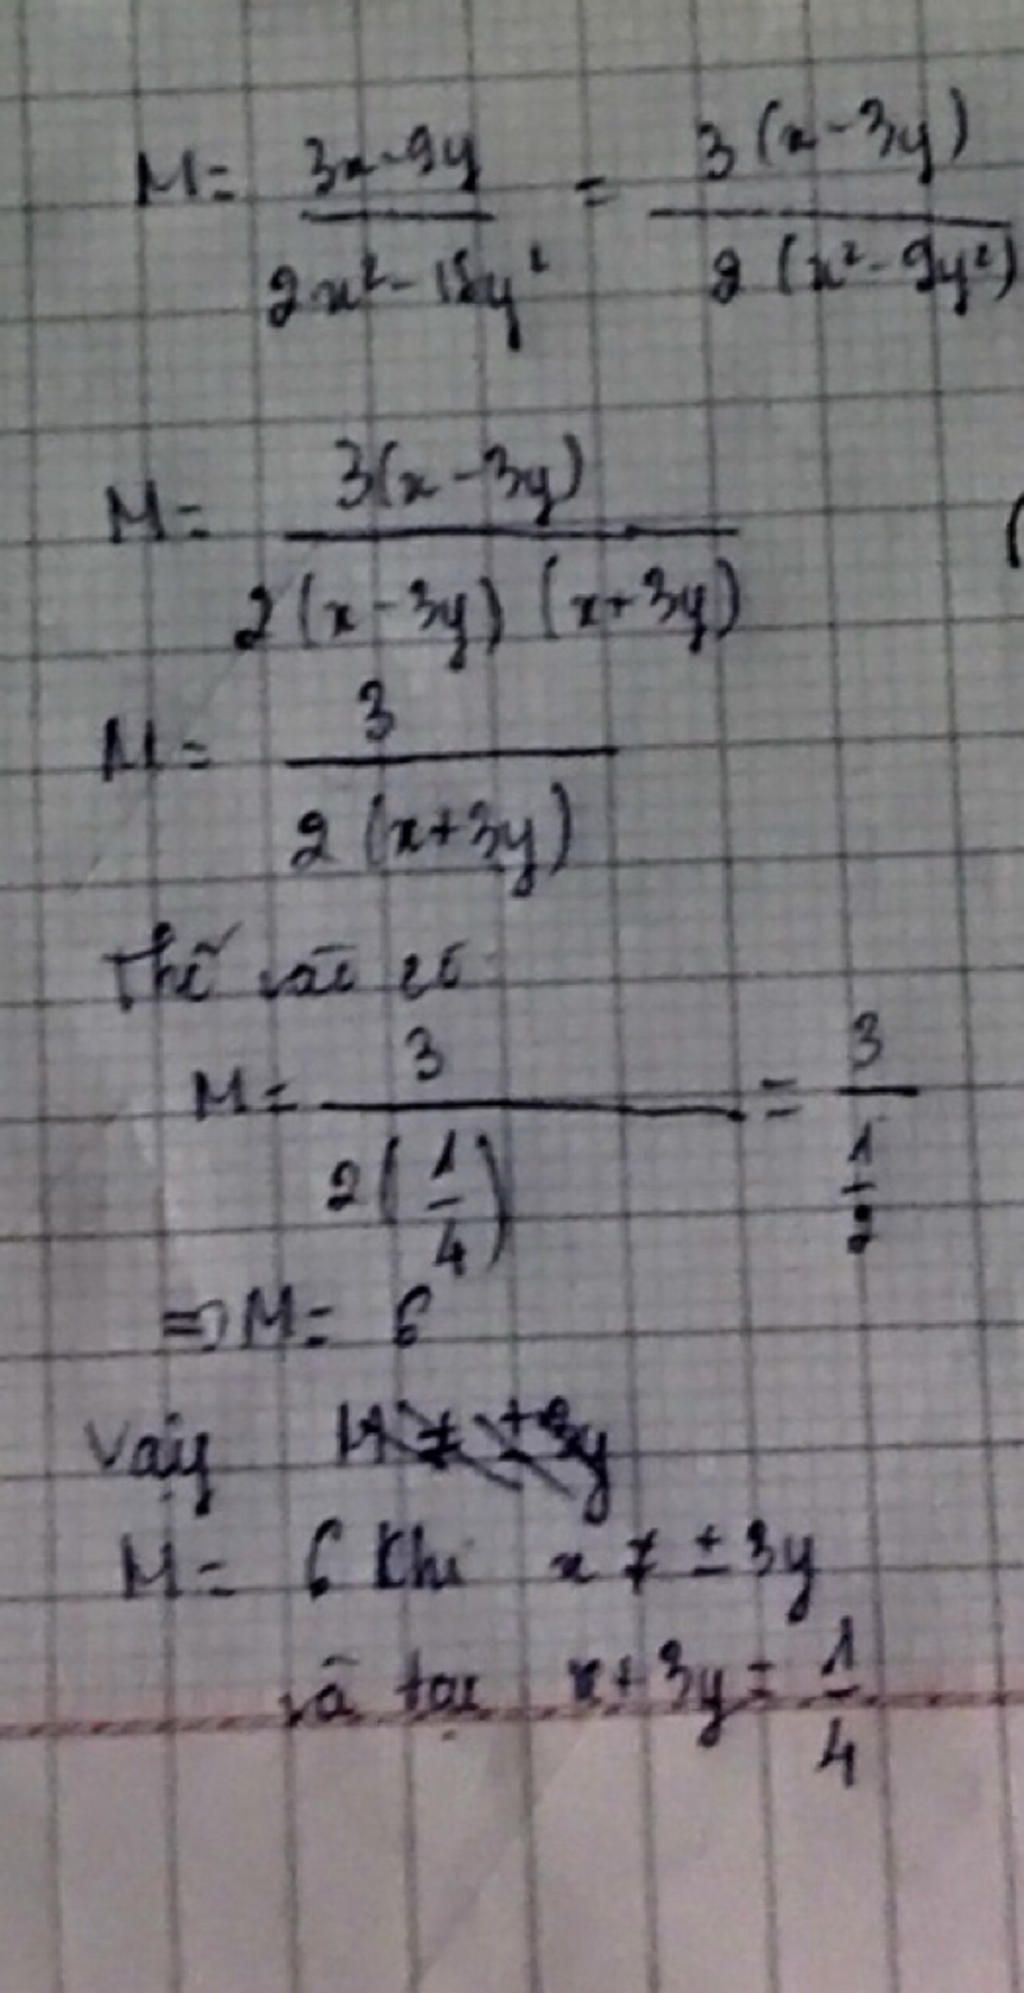 M = \frac{3x-9y}{2x²-18y²} = \frac{3(x-3y)}{2(x²-9y²)}
M = \frac{3(x-3y)}{2(x-3y)(x+3y)}
M = \frac{3}{2(x+3y)}
Thế vào
M = \frac{3}{2(\frac{1}{4})} = \frac{3}{\frac{1}{2}}
⇒ M = 6
Vậy
M = 6 khi x ≠ ±3y
và tại x+3y = \frac{1}{4}